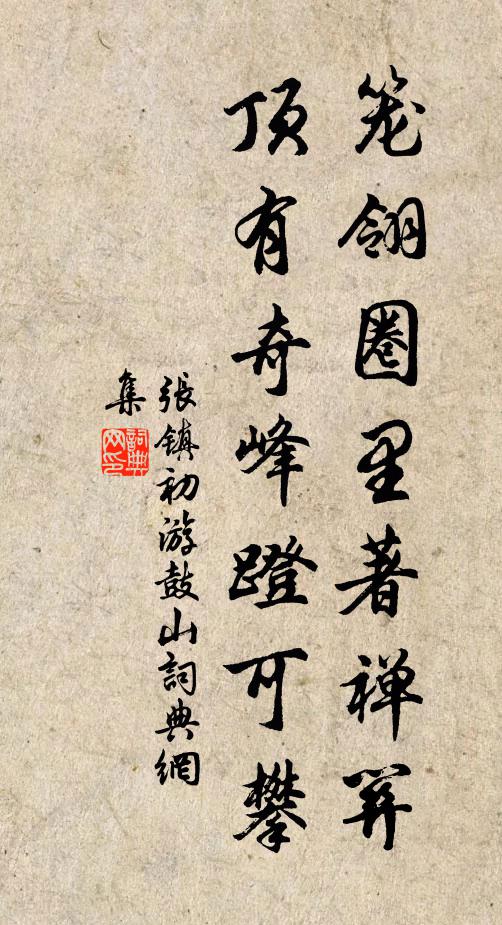 笼翎圈里著禅关
顶有奇峰蹬可攀
張鎮初游鼓山詞典網
集
詞典
网印